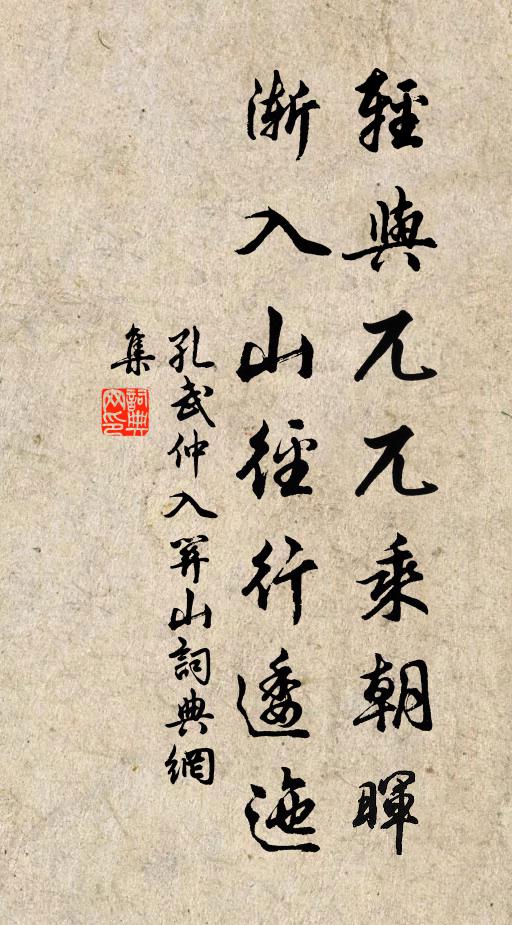 輕輿兀兀乘朝暉
漸入山徑行逶迤
孔武仲入山詞典網
集
詞典网印